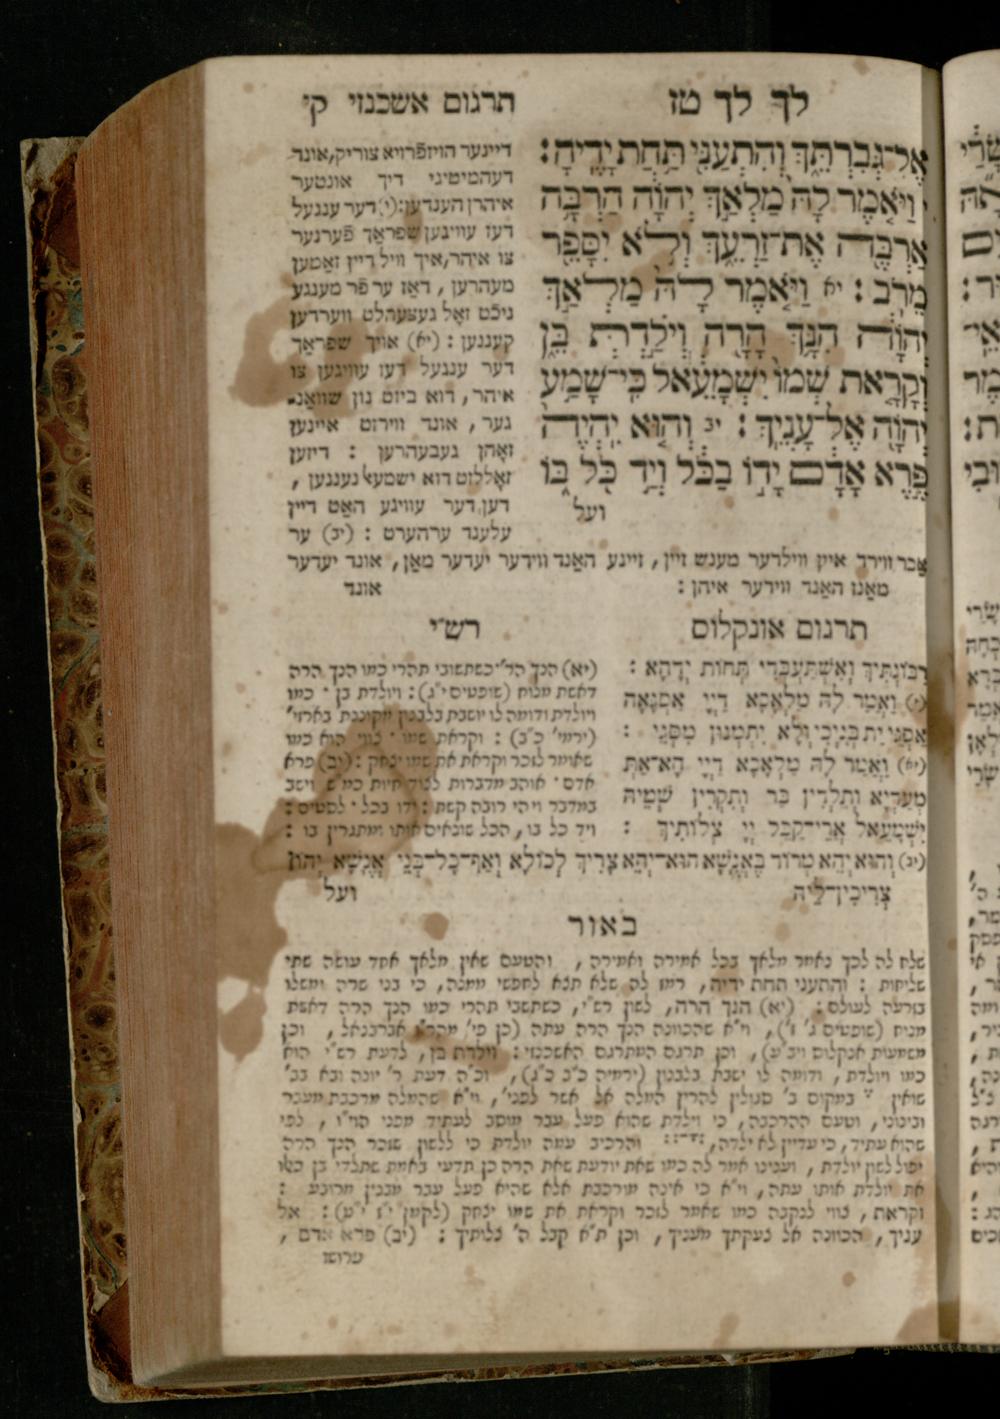 לך לך טז
תרגום אשכנזי קי
אֶל־גְּבִרְתֵּךְ וְהִתְעַנִּי תַּחַת יָדֶיהָ׃
י וַיֹּאמֶר לָהּ מַלְאַךְ יְהוָה הַרְבָּה
אַרְבֶּה אֶת־זַרְעֵךְ וְלֹא יִסָּפֵר
מֵרֹב׃ יא וַיֹּאמֶר לָהּ מַלְאַךְ
יְהוָה הִנָּךְ הָרָה וְיֹלַדְתְּ בֵּן
וְקָרָאת שְׁמוֹ יִשְׁמָעֵאל כִּי־שָׁמַע
יְהוָה אֶל־עָנְיֵךְ׃ יב וְהוּא יִהְיֶה
פֶּרֶא אָדָם יָדוֹ בַכֹּל וְיַד כֹּל בּוֹ
ועל
דיינער הויזפֿרויא צוריק, אונד
דעהמיטיגי דיך אונטער
איהרן הענדען: (י) דער ענגעל
דעז עוויגען שפראך פֿערנער
צו איהר, איך וויל דיין זאמען
מעהרען, דאז ער פֿר מענגע
ניכֿט זאל געצעהלט ווערדען
קענגען : (יא) אויך שפראך
דער ענגעל דעז עוויגען צו
איהר, דוא ביזט נון שוואנ־
גער, אונד ווירזט איינען
זאהן געבעהרען : דיזען
זאללזט דוא ישמעאל נעננען,
דען דער עוויגע האט דיין
עלענד ערהערט : (יב) ער
אבר ווירד איין ווילדער מענש זיין, זיינע האנד ווידער יעדער מאן, אונד יעדער
מאנז האנד ווידער איהן :
אונד
תרגום אונקלוס
רִבּוֹנְתִּיךְ וְאִשְׁתַּעְבְּדִי תְּחוֹת יְדָהָא :
(י) וַאֲמַר לַהּ מַלְאֲכָא דַיְיָ אַסְגָאָה
אַסְגֵי יַת בְּנַיְכִי וְלָא יִתְמְנוּן מִסְּגֵי :
(יא) וַאֲמַר לַהּ מַלְאֲכָא דַיְיָ הָא־אַתְּ
מְעַדְיָא וּתְלִדִין בַּר וְתִקְרִין שְׁמֵיהּ
יִשְׁמָעֵאל אֲרֵי־קַבֵּל יְיָ צְלוֹתִיךְ :
(יב) וְהוּא יְהֵא מְרוֹד בֶּאֱנָשָׁא הוּא־יְהֵא צָרִיךְ לְכוֹלָא וְאַף־כָּל־בְּנֵי אֲנָשָׁא יְהוֹן
צְרִיכִין־לֵיהּ
ועל
רש״י
(יא) הנך הר׳ כשתשובי תהרי כמו הנך הרה
דאשת מנוח (שופטים י״ג) : ויולדת בן · כמו
ויולדת ודומה לו יושבת בלבנון מקוננת בארזי׳
(ירמי׳ כ״ב) : וקראת שמו · צווי הוא כמו
שאומר לזכר וקראת את שמו יצחק : (יב) פרא
אדם · אוהב מדברות לצוד חיות כמ״ש וישב
במדבר ויהי רובה קשת : ידו בכל · לסטים :
ויד כל בו, הכל שונאים אותו ומתגרין בו :
באור
שלח לה לכך נאמר מלאך בכל אמירה ואמירה, והטעם שאין מלאך אחד עושה שתי
שליחות : והתעני תחת ידיה, רמז לה שלא תצא לחפשי ממנה, כי בני שרה ומשלו
בזרעה לעולם : (יא) הנך הרה, לשון רש״י, כשתשבי תהרי כמו הנך הרה דאשת
מנוח (שופטים ג׳ ז׳), וי״א שהכוונה הנך הרה עתה (כן פי׳ מהר״י אברבנאל, וכן
משמעות אנקלוס ויב״ע), וכן תרגם המתרגם האשכנזי : וילדת בן, לדעת רש״י הוא
כמו ויולדת, ודומה לו ישבת בלבנון (ירמיה כ״ב כ״ג), וכ״ה דעת ר׳ יונה ובא בב׳
שואין במקום ב׳ סגולין להרין המלה אל אשר לפני׳, וי״א שהמלה מרכבת מעבר
ובינוני, וטעם ההרכבה, כי וילדת שהוא פעל עבר מוסב לעתיד מפני הוי״ו, לפי
שהוא עתיד, כי עדיין לא ילדה, והרכיב עמה יולדת כי ללשון שזכר הנך הרה
יפול לשון יולדת, וענינו אמר לה כמו שאת יודעת שאת הרה כן תדעי באמת שתלדי בן כאלו
את יולדת אותו עתה, וי״א כי אינה מורכבת אלא שהיא פעל עבר מבנין מרובע :
וקראת, צווי לנקבה כמו שאמר לזכר וקראת את שמו יצחק (לקמן י״ז י״ט) : אל
עניך, הכוונה אל צעקתך מעניך, וכן ת״א קבל ה׳ צלותיך : (יב) פרא אדם,